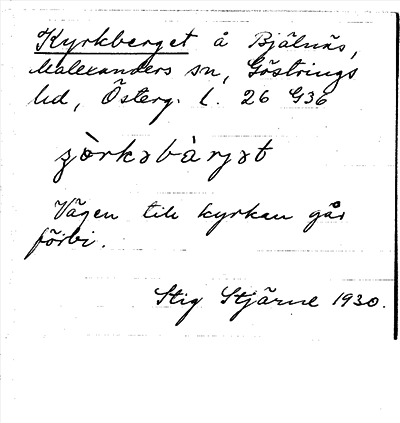 Kyrkberget å Bjälnäs,
Malexanders sn, Göstrings
hd, Österg. l. 26 G36
Vägen till kyrkan går
förbi.
Stig Stjärne 1930.